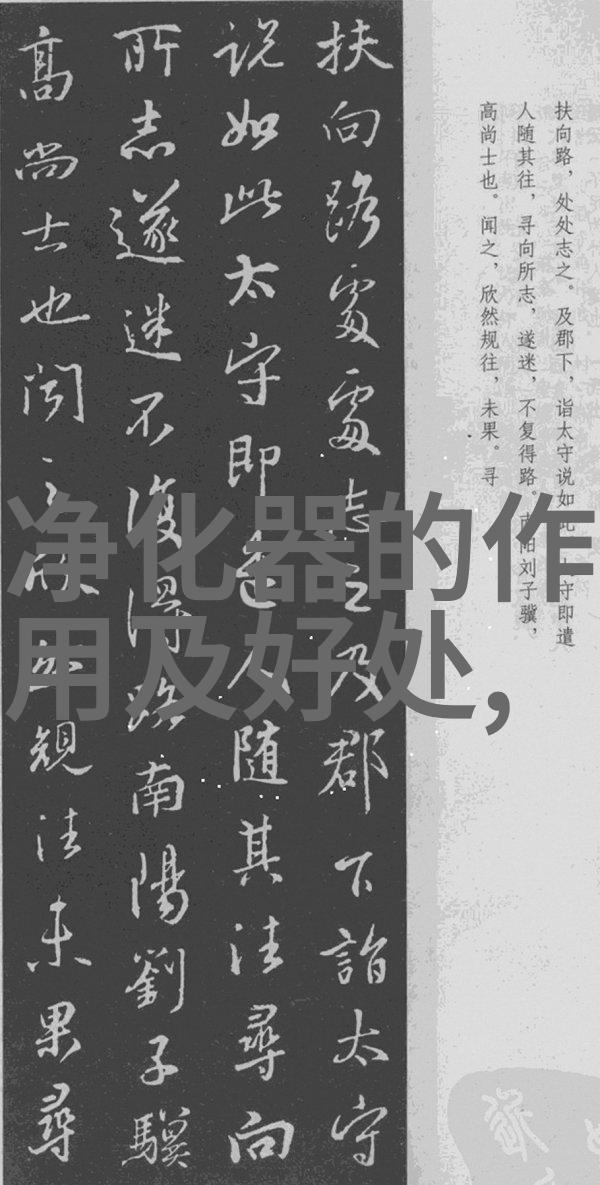 扶向路，处处志之。及郡下，诣太守说如此，太守即遣
人随其往，寻向所志，遂迷，不复得路。南阳刘子骥，
高尚士也。闻之，欣然规往，未果。寻
扶向路處處志之及郡下詣太守
説如此太守即遣人随其往尋向
所志遂迷不復得路南陽劉子驥
高尚士也闻之欣然規往未果尋
净化器的作
用及好处,